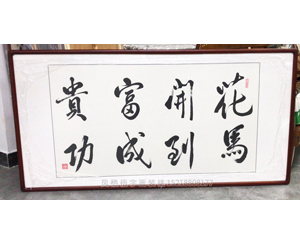 花開富貴
馬到成功